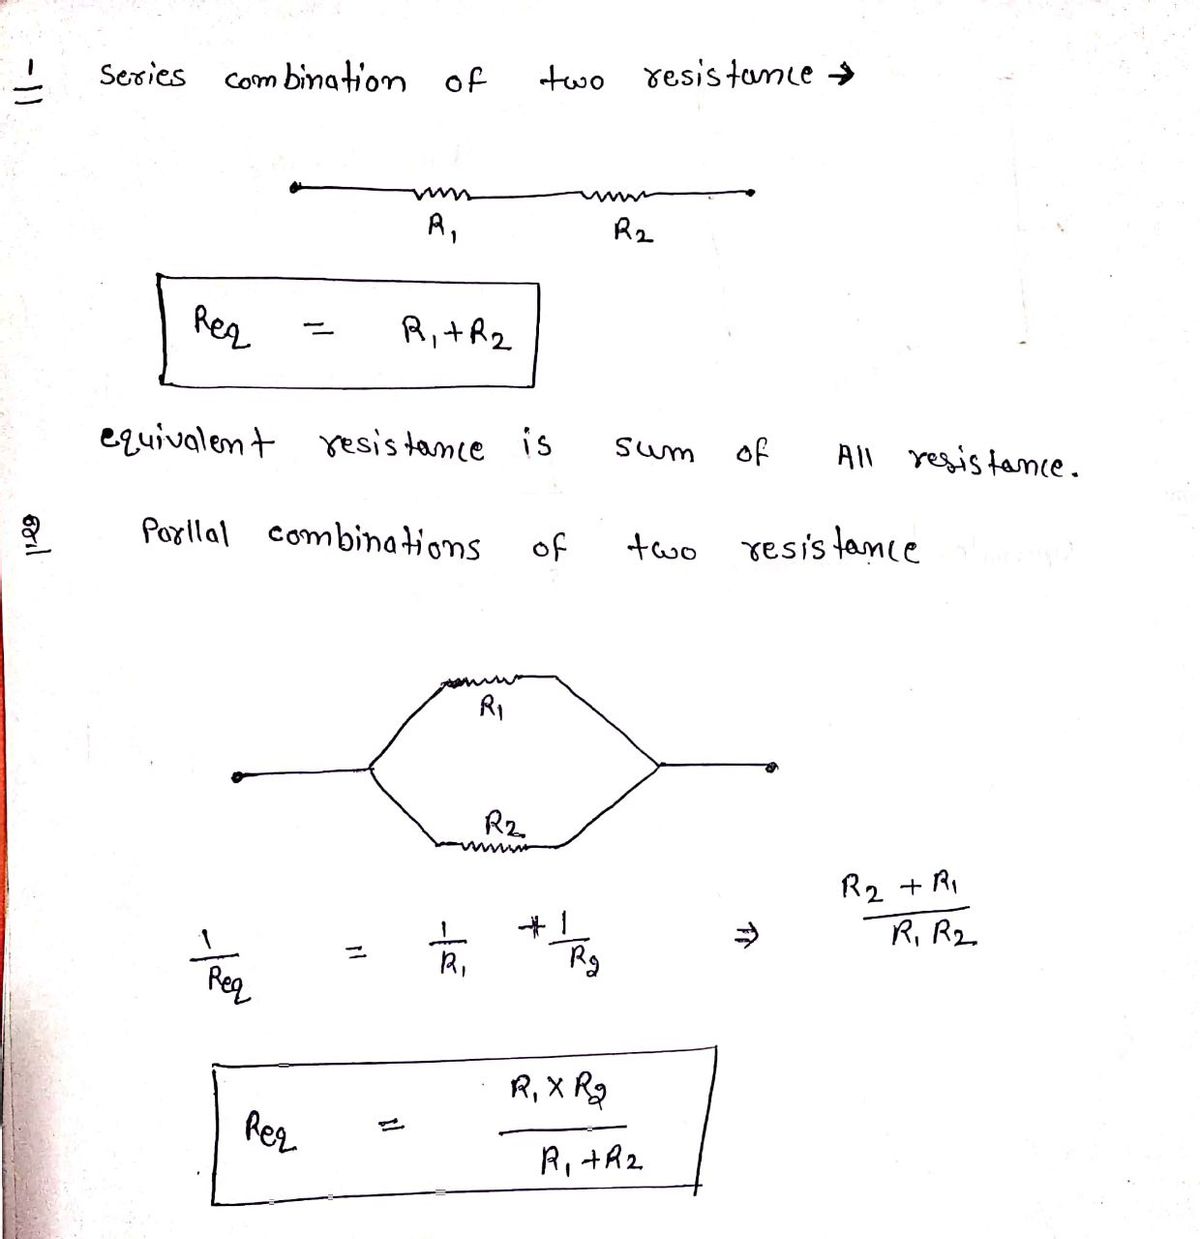 1 Series combination of two resistance →
R1 R2
Req = R1+R2
equivalent resistance is sum of All resistance.
2 Parllal combinations of two resistance
R1
R2
1/Req = 1/R1 + 1/R2 ⇒ R2 + R1/R1 R2
Req = R1 x R2/R1 + R2